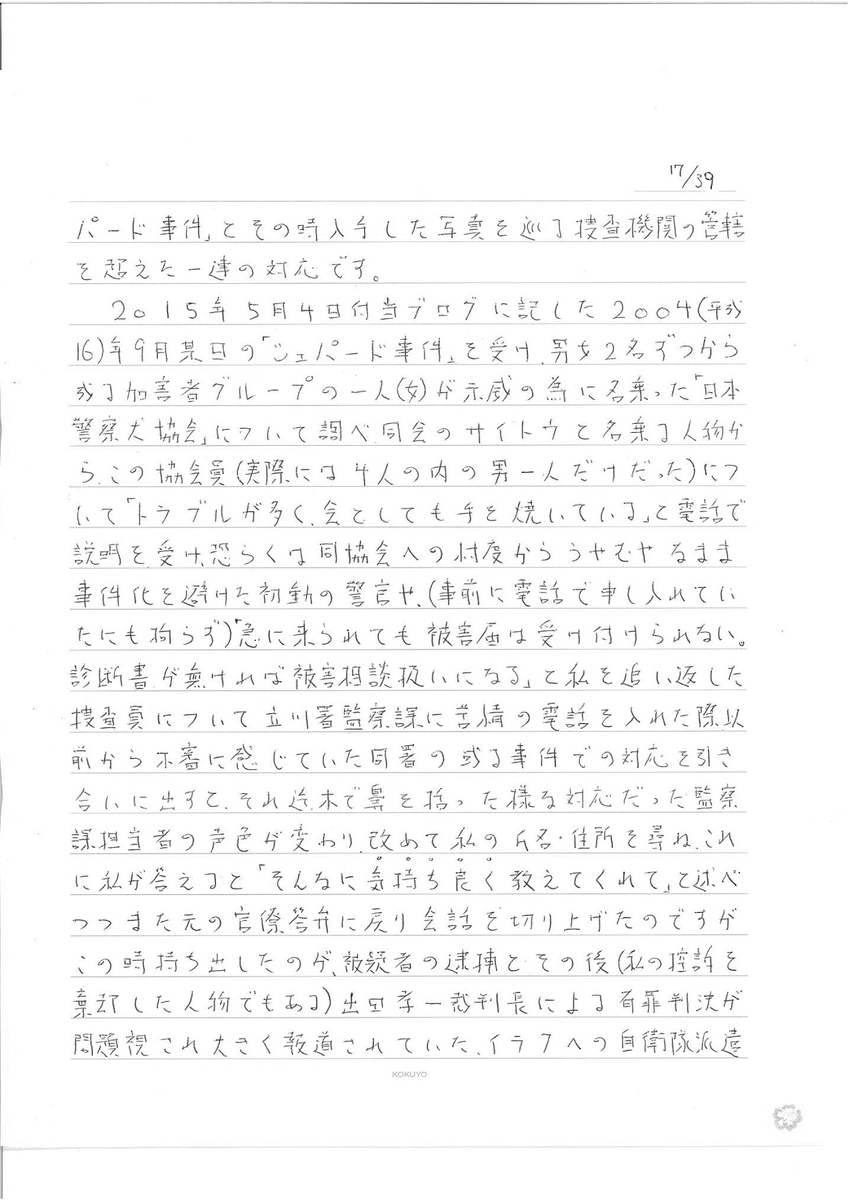 17/39
パード事件」とその時入手した写真を巡る捜査機関の管轄
を超えた一連の対応です。
２０１５年５月４日付当ブログに記した２００４(平成
16)年９月某日の「シェパード事件」を受け、男女２名ずつから
成る加害者グループの一人(女)が示威の為に名乗った「日本
警察犬協会」について調べ、同会のサイトウと名乗る人物か
ら、この協会員(実際には４人の内の男一人だけだった)につ
いて「トラブルが多く、会としても手を焼いている」と電話で
説明を受け、恐らくは同協会への忖度からうやむやなるまま
事件化を避けた初動の警官や、(事前に電話で申し入れてい
たにも拘らず)「急に来られても被害届は受け付けられない。
診断書が無ければ被害相談扱いになる」と私を追い返した
捜査員について立川署監察課に苦情の電話を入れた際、以
前から不審に感じていた同署の或る事件での対応を引き
合いに出すと、それ迄、木で鼻を括った様な対応だった監察
課担当者の声色が変わり、改めて私の氏名・住所を尋ね、これ
に私が答えると「そんなに気持ち良く教えてくれて」と述べ
つつまた元の官僚答弁に戻り会話を切り上げたのですが
この時持ち出したのが、被疑者の逮捕とその後(私の控訴を
棄却した人物でもある)出田孝一裁判長による有罪判決が
問題視され大きく報道されていた、イラクへの自衛隊派遣
KOKUYO